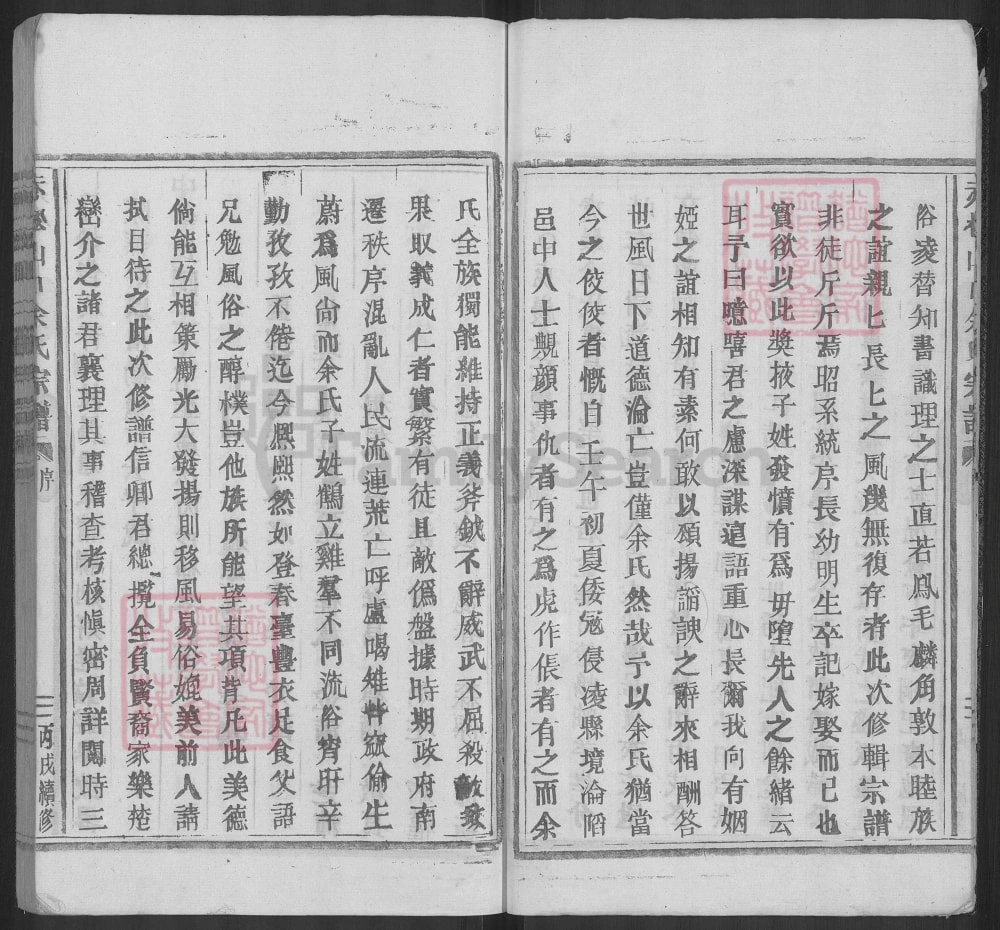 俗凌替知書識理之士直若鳳毛麟角敦本睦族
之誼親匕長匕之風幾無復存者此次修輯宗譜
非徒斤斤焉昭系統序長幼明生卒記嫁娶而已也
實欲以此獎掖子姓發憤有爲毋墮先人之餘緒云
耳予曰噫嘻君之慮深謀遠語重心長爾我向有姻
婭之誼相知有素何敢以頌揚謟諛之辭來相酬答
世風日下道德淪亡豈僅余氏然哉予以余氏猶當
今之佼佼者慨自壬午初夏倭冦侵凌縣境淪陷
邑中人士靦顔事仇者有之爲虎作倀者有之而余
氏全族獨能維持正義斧鉞不辭威武不屈殺敵致
果取義成仁者實繁有徒且敵僞盤據時期政府南
遷秩序混亂人民流連荒亡呼盧喝雉萑苻竊偷生
蔚爲風尙而余氏子姓鶴立雞羣不同流俗宵旰辛
勤孜孜不倦迄今熙熙然如登春臺豐衣足食父語
兄勉風俗之醇樸豈他族所能望其項背凡此美德
倘能互相策勵光大發揚則移風易俗媲美前人請
拭目待之此次修譜信卿君總攬全負賢裔家樂楚
巒介之諸君襄理其事稽查考核愼密周詳閱時三
余氏宗譜
序
三
丙戌續修
FamilySearch